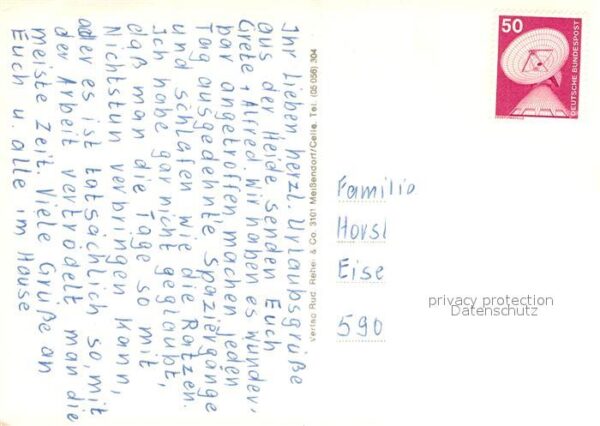 Ihr Lieben herzl. Urlaubsgrüße
aus der Heide senden Euch
Grete + Alfred. Wir haben es wunder-
bar angetroffen machen jeden
Tag ausgedehnte Spaziergänge
und schlafen wie die Ratzen.
Ich habe gar nicht geglaubt,
daß man die Tage so mit
Nichtstun verbringen kann,
oder es ist tatsächlich so, mit
der Arbeit vertrödelt man die
meiste Zeit. Viele Grüße an
Euch u. alle im Hause
Verlag Rud. Reher & Co. 3101 Meißendorf/Celle. Tel. (05 056) 304
50
DEUTSCHE BUNDESPOST
Familie
Horst
Eise
590
privacy protection
Datenschutz